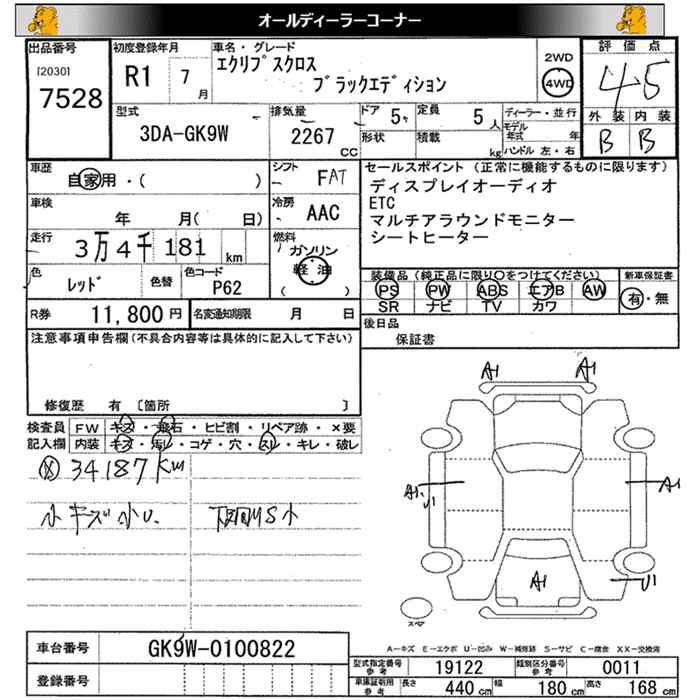 オールディーラーコーナー
出品番号
[2030]
7528
初度登録年月
R1 7月
車名・グレード
エクリプスクロス
ブラックエディション
2WD
4WD
評価点
4.5
外装 内装
B B
型式
3DA-GK9W
排気量
2267 CC
ドア 5
定員 5人
形状
積載 kg
ディーラー・並行
モデル年式 年
ハンドル 左・右
車歴
自家用・( )
シフト
FAT
車検
年 月( 日)
冷房
AAC
走行
3万4千181 km
燃料
ガソリン
軽油
( )
色
レッド
色替
色コード
P62
R券 11,800円
名変通知期限 月 日
セールスポイント (正常に機能するものに限ります)
ディスプレイオーディオ
ETC
マルチアラウンドモニター
シートヒーター
装備品 (純正品に限り○をつけてください)
PS PW ABS エアB AW
SR ナビ TV カワ
新車保証書
有・無
後日品
保証書
注意事項申告欄 (不具合内容等は具体的に記入して下さい)
修復歴 有 〔箇所 〕
検査員
記入欄
FW キズ・飛石・ヒビ割・リペア跡・×要
内装 キズ・汚レ・コゲ・穴・スレ・キレ・破レ
34187km
小キズ小U. 下回りMS小
A1 A1
A1 U1
A1
A1
U1
スペア
A-キズ E-エクボ U-凹み W-補修跡 S-サビ C-腐食 XX-交換済
車台番号 GK9W-0100822
登録番号
型式指定番号 参考 19122
類別区分番号 参考 0011
車庫証明用 参考
長さ 440 cm
幅 180 cm
高さ 168 cm